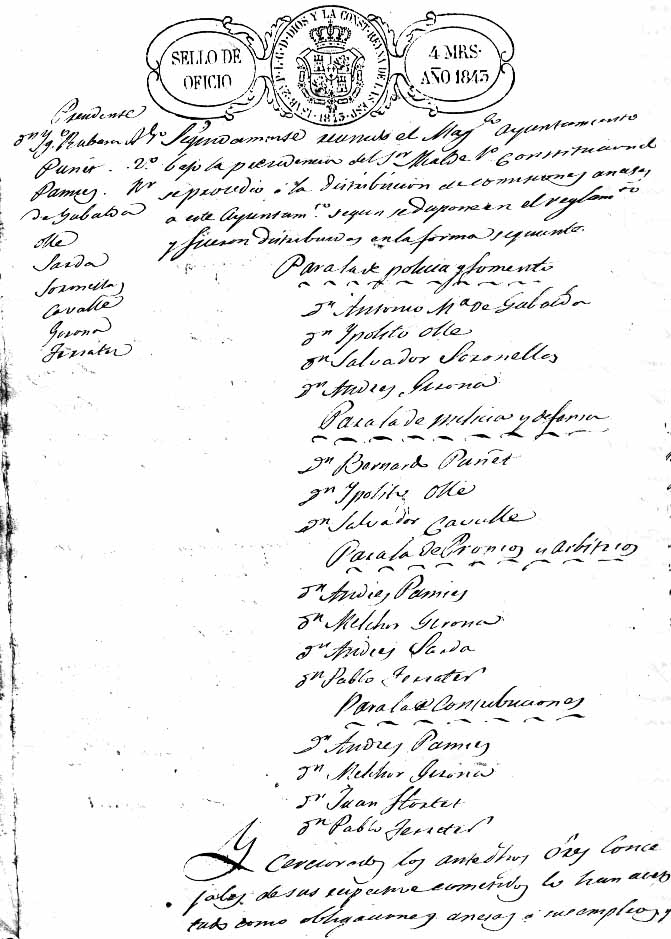 SELLO DE
OFICIO
ISAB. 2ª P. L. G. D. DIOS Y LA CONST. REYNA DE LAS ESP. 1843
4 MRS.
AÑO 1843
Presidente
Dn Ygo Rabasa Al. 1º
Puñet. 2º
Pamies. Rr
de Gabaldá
Olle
Sardá
Soronellas
Cavallé
Gerona
Ferrater
Seguidamente reunido el Mag.co Ayuntamiento
bajo la presidencia del Sor Alcalde 1º Constitucional
se procedio á la distribucion de comisiones anexas
a este Ayuntam.to segun se dispone en el reglam.to
y fueron distribuidas en la forma seguiente.
Para la de policia y fomento
Dn Antonio Mª de Gabaldá
Dn Ypolito Olle
Dn Salvador Soronellas
Dn Andres Gerona
Para la de milicia y defensa
Dn Bernardo Puñet
Dn Ypolito Olle
Dn Salvador Cavalle
Para la de Propios y arbitrios
Dn Andres Pamies
Dn Melchor Gerona
Dn Andres Sarda
Dn Pablo Ferrater
Para la de Contribuciones
Dn Andres Pamies
Dn Melchor Gerona
Dn Juan
Dn Pablo Ferrater
Y cerciorados los antedhos Sres Conce
jales de sus respective cometidos lo han acep
tado como obligaciones anexas á sus empleos, y